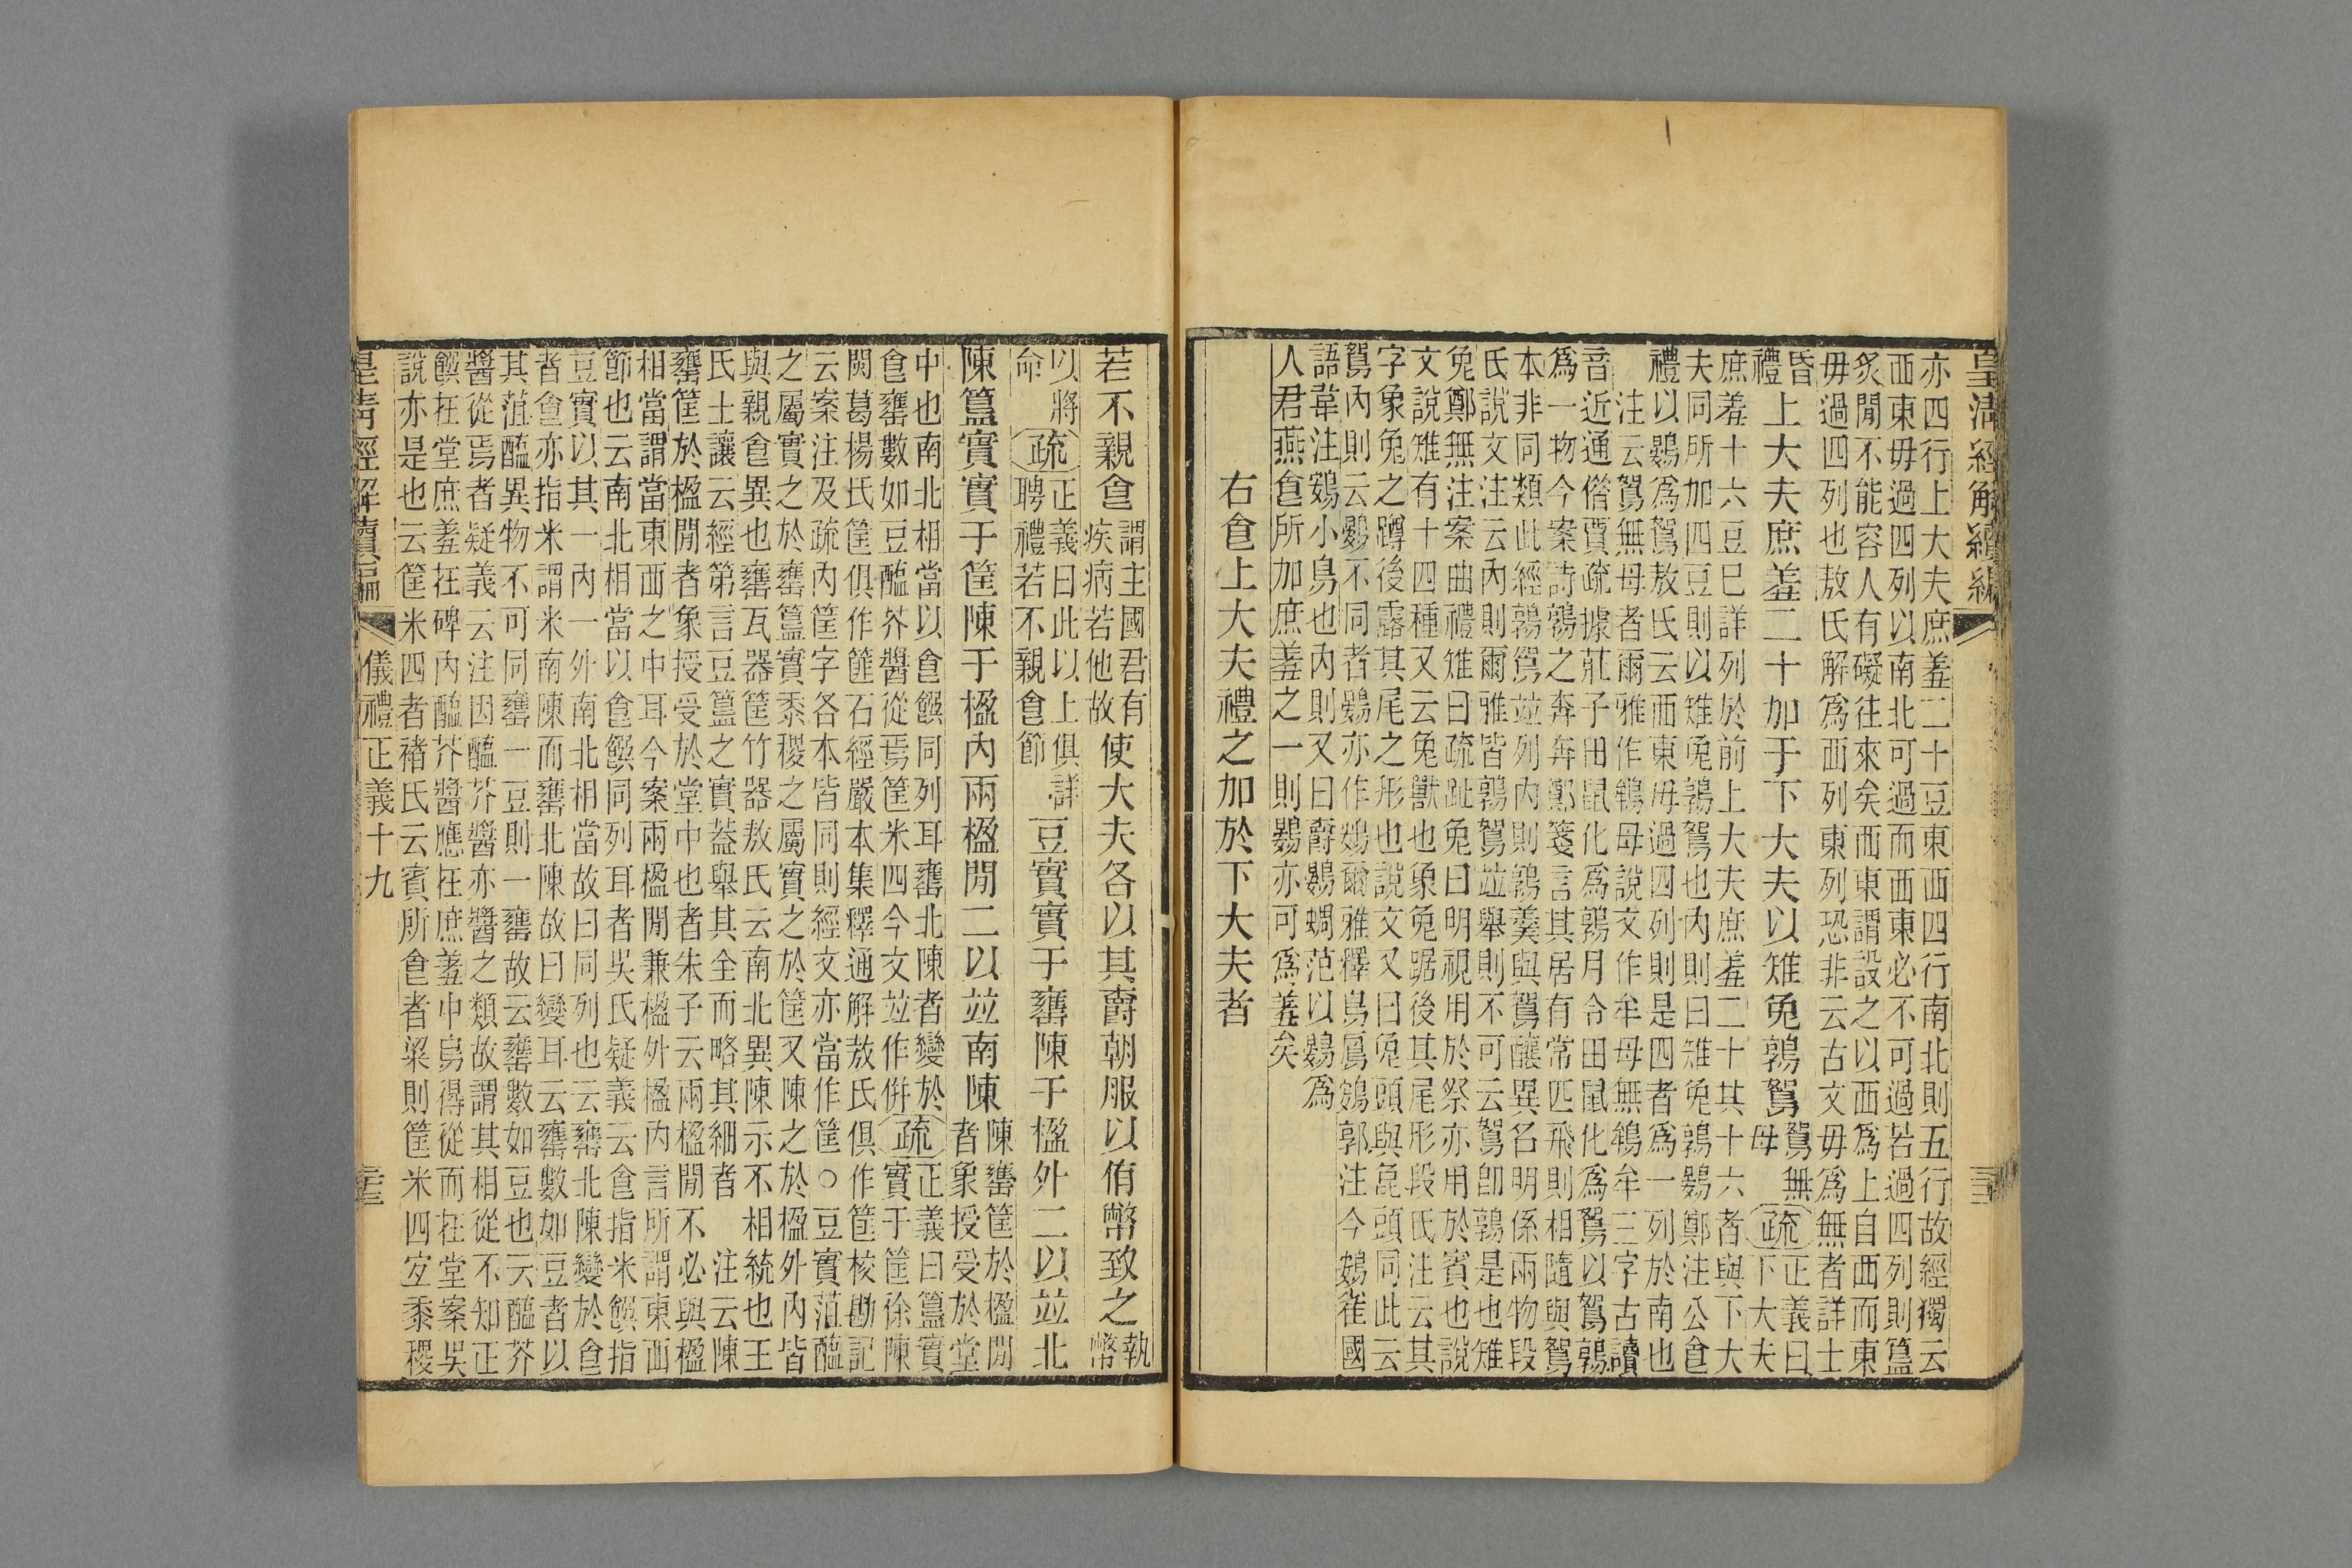 皇清經解續編
亦四行上大夫庶羞二十豆東西四行南北則五行故經獨云
西東毋過四列以南北可過而西東必不可過若過四列則簋
炙閒不能容人有礙往來矣西東謂設之以西爲上自西而東
毋過四列也敖氏解爲西列東列恐非云古文毋爲無者詳士
昏
禮
上大夫庶羞二十加于下大夫以雉兔鶉鴽
鴽無
母
疏
正義曰
下大夫
庶羞十六豆巳詳列於前上大夫庶羞二十其十六者與下大
夫同所加四豆則以雉兔鶉鴽也內則曰雉兔鶉鷃鄭注公食
禮以鷃爲鴽敖氏云西東毋過四列則是四者爲一列於南也
注云鴽無母者爾雅作鴾母說文作牟母無鴾牟三字古讀
音近通偕賈疏據莊子田鼠化爲鶉月令田鼠化爲鴽以鴽鶉
爲一物今案詩鶉之奔奔鄭箋言其居有常匹飛則相隨與鴽
本非同類此經鶉鴽竝列內則鶉羹與鴽釀異名明係兩物段
氏說文注云內則爾雅皆鶉鴽竝舉則不可云鴽卽鶉是也雉
兔鄭無注案曲禮雉曰疏趾兔曰明視用於祭亦用於賓也說
文說雉有十四種又云兔獸也象兔踞後其尾形段氏注云其
字象兔之蹲後露其尾之形也說文又曰兔頭與㲋頭同此云
鴽內則云鷃不同者鷃亦作鴳爾雅釋鳥鳸鴳郭注今鴳雀國
語韋注鴳小鳥也內則又曰爵鷃蜩范以鷃爲
人君燕食所加庶羞之一則鷃亦可爲羞矣
右食上大夫禮之加於下大夫者
若不親食
謂主國君有
疾病若他故
使大夫各以其爵朝服以侑幣致之
執
幣
以將
命
疏
正義曰此以上俱詳
聘禮若不親食節
豆實實于罋陳于楹外二以竝北
陳簋實實于筐陳于楹內兩楹閒二以竝南陳
陳罋筐於楹閒
者象授受於堂
中也南北相當以食饌同列耳罋北陳者變於
食罋數如豆醢芥醬從焉筐米四今文竝作併
疏
正義曰簋實
實于筐徐陳
閩葛楊氏筐俱作篚石經嚴本集釋通解敖氏俱作筐校勘記
云案注及疏內筐字各本皆同則經文亦當作筐○豆實菹醢
之屬實之於罋簋實黍稷之屬實之於筐又陳之於楹外內皆
與親食異也罋瓦器筐竹器敖氏云南北異陳示不相統也王
氏士讓云經第言豆簋之實葢舉其全而略其細者　注云陳
罋筐於楹閒者象授受於堂中也者朱子云兩楹閒不必與楹
相當謂當東西之中耳今案兩楹閒兼楹外楹內言所謂東西
節也云南北相當以食饌同列耳者吳氏疑義云食指米饌指
豆實以其一內一外南北相當故曰同列也云罋北陳變於食
者食亦指米謂米南陳而罋北陳故曰變耳云罋數如豆者以
其菹醢異物不可同罋一豆則一罋故云罋數如豆也云醢芥
醬從焉者疑義云注因醢芥醬亦醬之類故謂其相從不知正
饌在堂庶羞在碑內醢芥醬應在庶羞中曷得從而在堂案吳
說亦是也云筐米四者褚氏云賓所食者粱則筐米四宜黍稷
皇清經解續編
儀禮正義十九